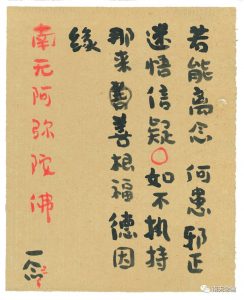 若能离念 何患邪正
迷悟信疑〇如不执持
那来善善根福德因
缘
南无阿弥陀佛
一念